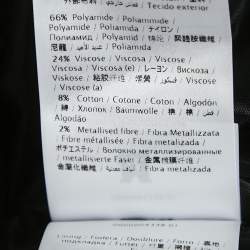 Tecido exterior
66% Polyamide / Poliammide /
Polyamide / Polyamid / ナイロン /
Полиамид / Polyamid / 錦綸 / 聚醯胺纖維 /
尼龍 / پولی آمید / Poliamida
24% Viscose / Viscosa / Viscose /
Viscosa / Viscosa (e) / レーヨン / Вискоза /
Viskose / 粘胶纤维 / 嫘縈 / فسكوز / Viscose /
Viscosa
8% Cotton / Cotone / Coton / Algodón /
綿 / Хлопок / Baumwolle / 棉 / 棉 / قطن /
Algodão
2% Metallised fibre / Fibra Metallizzata
/ Fibre métallisée / Fibra metalizada /
ポチエステル / Волокно металлизированное /
metallisierte Faser / 金属镀膜纤维 /
金屬化纖維 / الياف معدنية / Fibra metalizada
Lining / Fodera / Doublure / Forro / 裏地